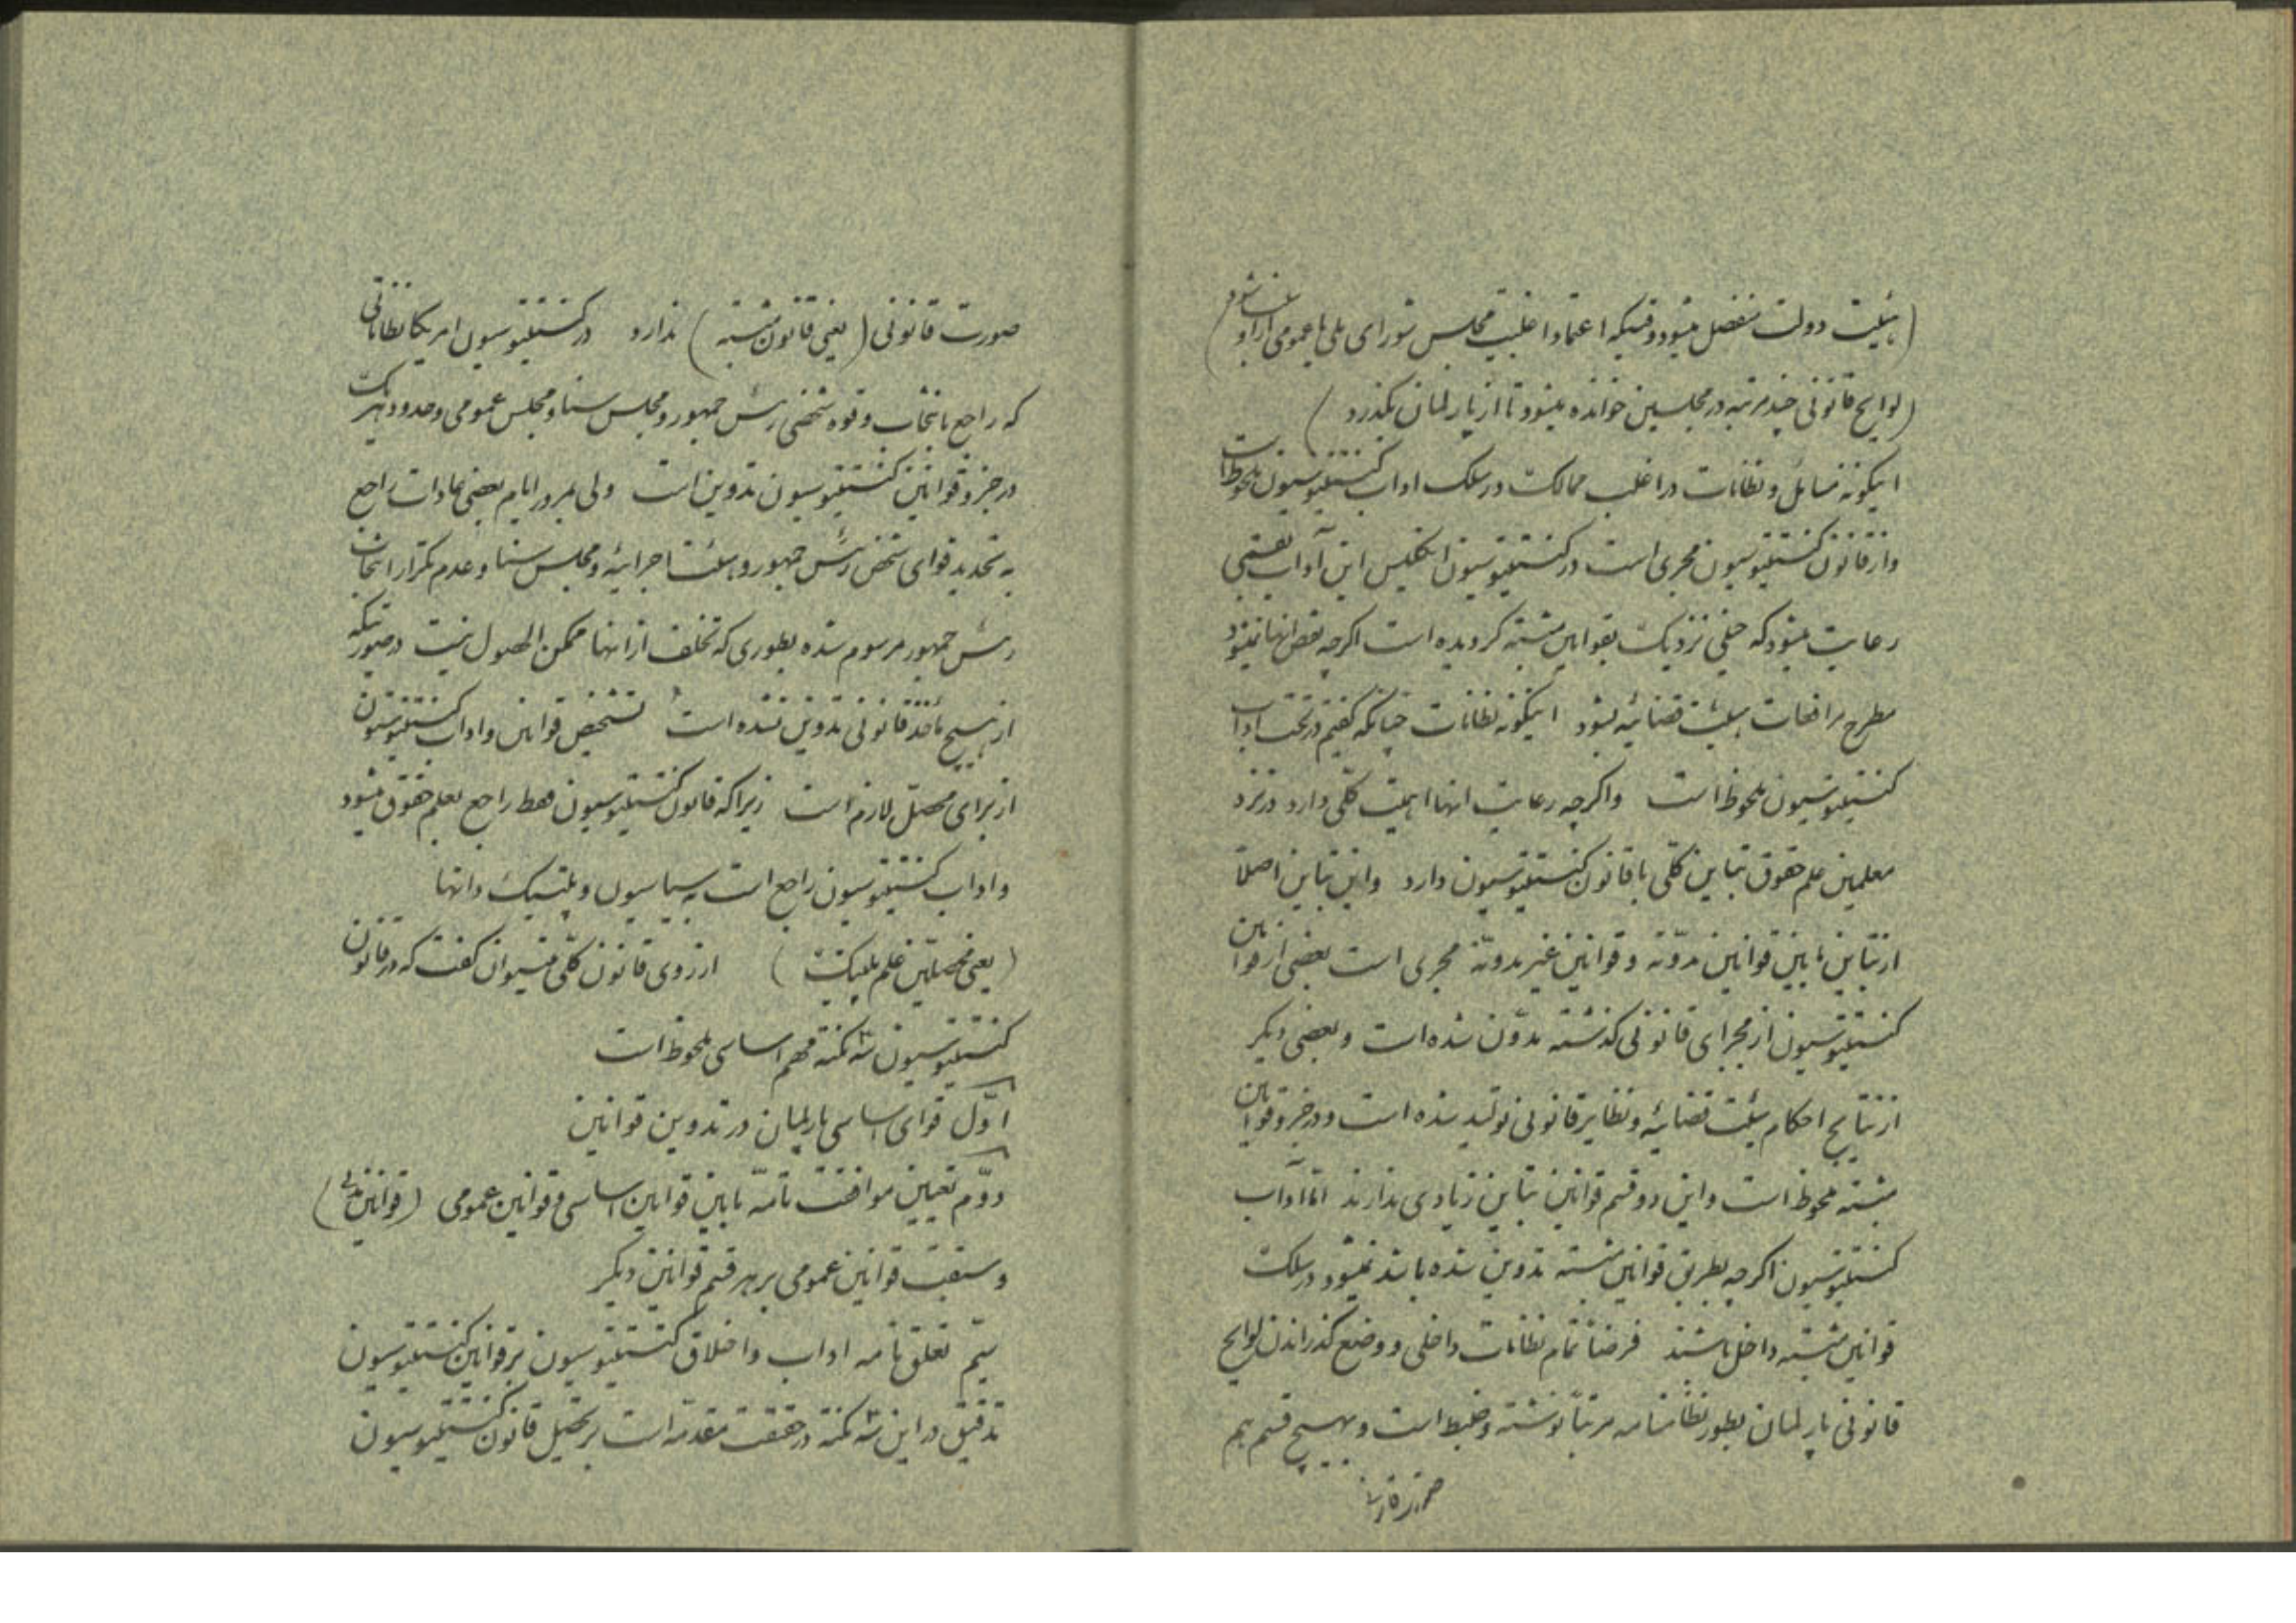 (هیئت دولت منفصل میشود وقتیکه اعتماد اغلبیت مجلس شورای ملی یا عمومی از او سلب شود)
(لوایح قانونی چند مرتبه در مجلسین خوانده میشود تا از پارلمان بگذرد)
اینگونه مسائل و نظامات در اغلب ممالک در سلک اداب کنستیتوسیون ملحوظ است
و از قانون کنستیتوسیون مجری است در کنستیتوسیون انگلیس این آداب بقسمی
رعایت میشود که خیلی نزدیک بقوانین مثبته گردیده است اگرچه نقض انها نمیشود
مطرح مرافعات هیئت قضائیه بشود اینگونه نظامات چنانکه گفتیم در تحت اداب
کنستیتوسیون ملحوظ است و اگرچه رعایت انها اهمیت کلی دارد در نزد
معلمین علم حقوق تباین کلی با قانون کنستیتوسیون دارد و این تباین اصلاً
از تباین مابین قوانین مدوّنه و قوانین غیر مدوّنه مجری است بعضی از قوانین
کنستیتوسیون از مجرای قانونی گذشته مدوّن شده است و بعضی دیگر
از نتایج احکام هیئت قضائیه و نظایر قانونی تولید شده است و در جزو قوانین
مثبته محوظ است و این دو قسم قوانین تباین زیادی ندارند امّا آداب
کنستیتوسیون اگرچه بطریق قوانین مثبته تدوین شده باشد نمیشود در سلک
قوانین مثبته داخل باشند فرضاً تمام نظامات داخلی و وضع گذراندن لوایح
قانونی پارلمان بطور نظامنامه مرتباً نوشته و ضبط است و بهیچ قسم هم
صورت قانونی (یعنی قانون مثبته) ندارد در کنستیتوسیون امریکا نظاماتی
که راجع بانتخاب و قوه شخصی رئیس جمهور و مجلس سنا و مجلس عمومی و حدود هریک
در جزو قوانین کنستیتوسیون تدوین است ولی بمرور ایام بعضی عادات راجع
به تحدید قوای شخص رئیس جمهور و هیئت اجرائیه و مجلس سنا و عدم تکرار انتخاب
رئیس جمهور مرسوم شده بطوری که تخلف از انها ممکن الحصول نیست در صورتیکه
از هیچ مأخذ قانونی تدوین نشده است تشخیص قوانین و اداب کنستیتوسیون
از برای محصل لازم است زیرا که قانون کنستیتوسیون فقط راجع بعلم حقوق میشود
و اداب کنستیتوسیون راجع است به سیاسیون و پلتیک دانها
(یعنی محصلین علم پلتیک) از روی قانون کلّی میتوان گفت که در قانون
کنستیتوسیون سه نکته مهم اساسی ملحوظ است
اوّل قوای اساسی پارلمان در تدوین قوانین
دوّم تعیین موافقت تامّه مابین قوانین اساسی و قوانین عمومی (قوانین)
و سبقت قوانین عمومی بر هر قسم قوانین دیگر
سیّم تعلق تامه اداب و اخلاق کنستیتوسیون بر قوانین کنستیتوسیون
تدقیق در این سه نکته در حقیقت مقدمه است بر تحصیل قانون کنستیتوسیون